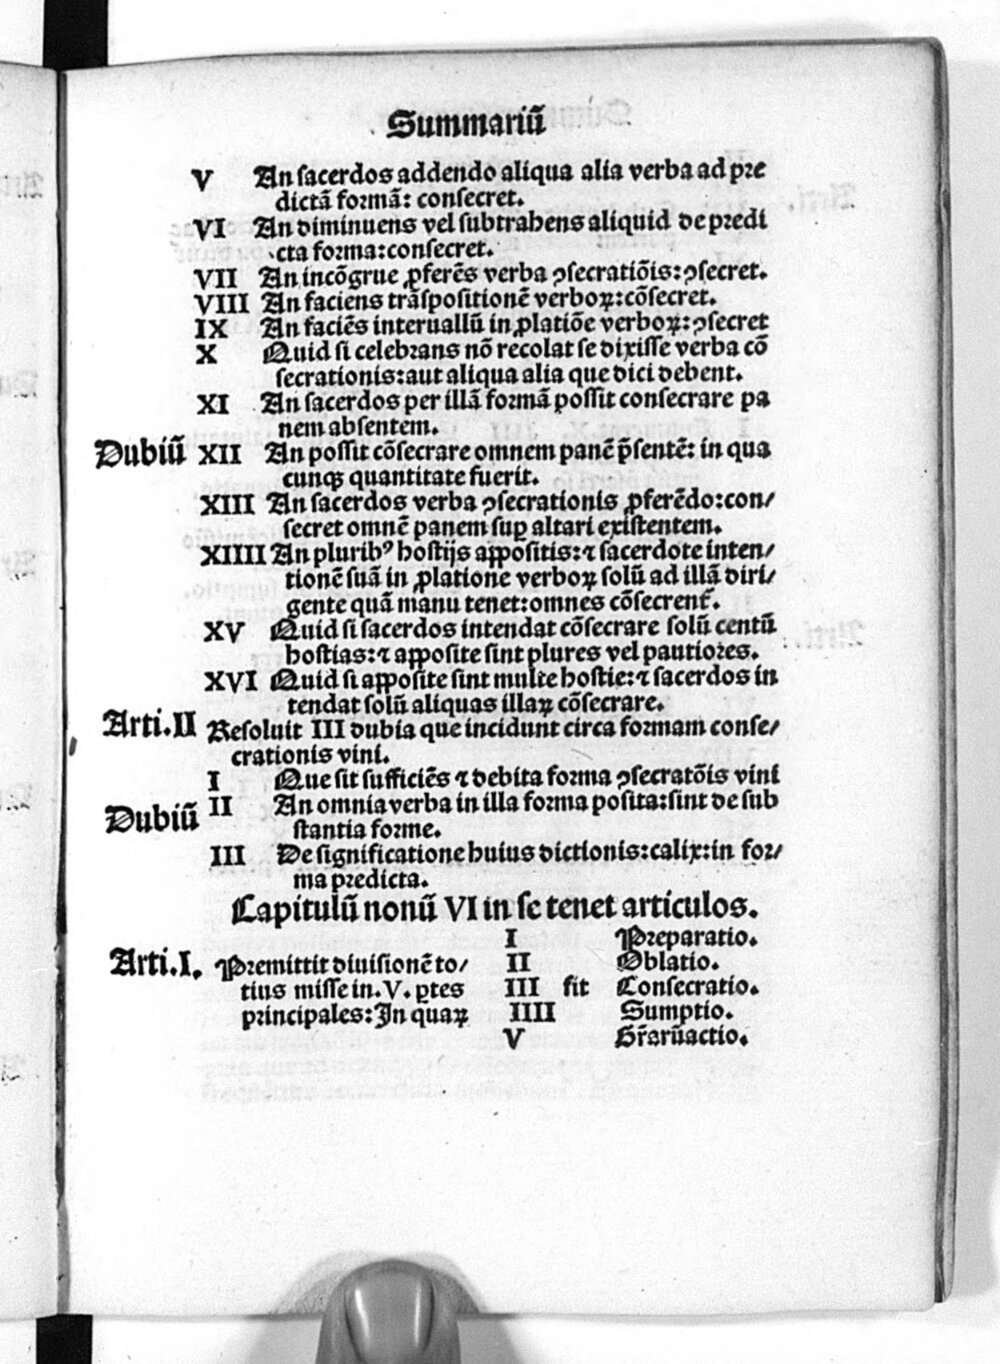 Summariū
V An sacerdos addendo aliqua alia verba ad pre
dictā formā: consecret.
VI An diminuens vel subtrahens aliquid de predi
cta forma:consecret.
VII An incōgrue ꝓferēs verba ꝯsecratiōis:ꝯsecret.
VIII An faciens trāspositionē verboꝝ:cōsecret.
IX An faciēs interuallū in ꝓlatiōe verboꝝ:ꝯsecret
X Quid si celebrans nō recolat se dixisse verba cō
secrationis:aut aliqua alia que dici debent.
XI An sacerdos per illā formā possit consecrare pa
nem absentem.
Dubiū XII An possit cōsecrare omnem panē p̄sentē: in qua
cunqꝫ quantitate fuerit.
XIII An sacerdos verba ꝯsecrationis ꝓferēdo:con/
secret omnē panem suꝑ altari existentem.
XIIII An pluribꝰ hostijs appositis:⁊ sacerdote inten/
tionē suā in ꝓlatione verboꝝ solū ad illā diri/
gente quā manu tenet:omnes cōsecrent̄.
XV Quid si sacerdos intendat cōsecrare solū centū
hostias:⁊ apposite sint plures vel pautiores.
XVI Quid si apposite sint multe hostie:⁊ sacerdos in
tendat solū aliquas illaꝝ cōsecrare.
Arti.II Resoluit III dubia que incidunt circa formam conse/
crationis vini.
I Que sit sufficiēs ⁊ debita forma ꝯsecratōis vini
Dubiū II An omnia verba in illa forma posita:sint de sub
stantia forme.
III De significatione huius dictionis:calix:in for/
ma predicta.
Capitulū nonū VI in se tenet articulos.
I Preparatio.
Arti.I. Premittit diuisionē to/ II Oblatio.
tius misse in.V.ꝑtes III fit Consecratio.
principales:In quaꝝ IIII Sumptio.
V